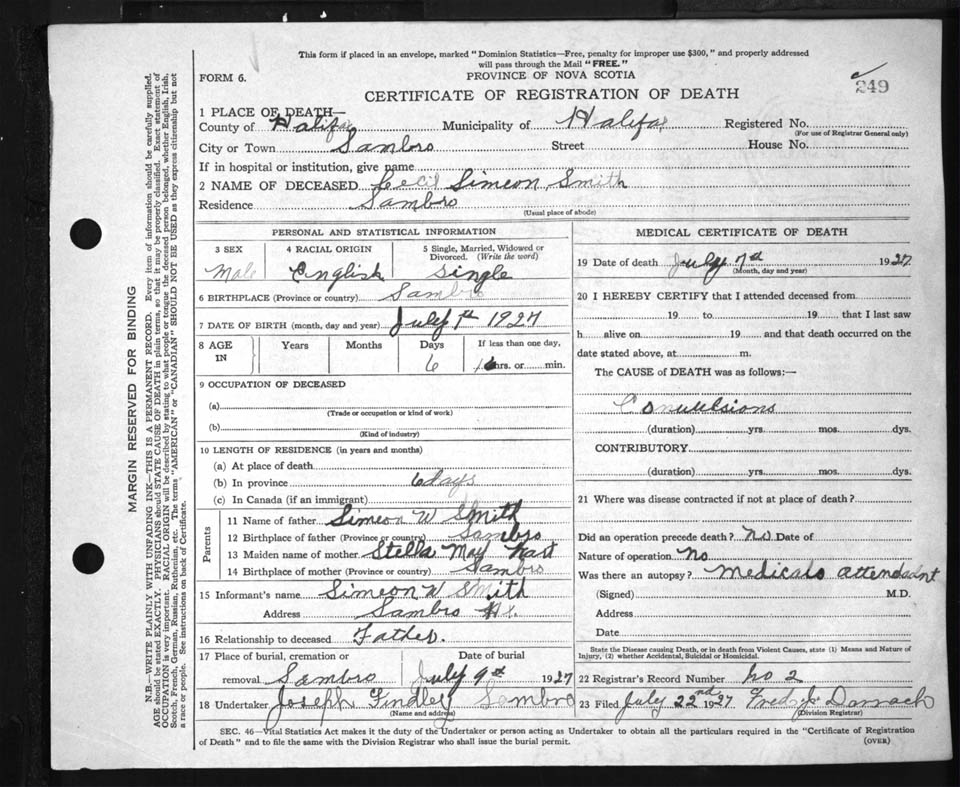 This form if placed in an envelope, marked "Dominion Statistics—Free, penalty for improper use $300," and properly addressed
will pass through the Mail "FREE."
FORM 6.
PROVINCE OF NOVA SCOTIA
CERTIFICATE OF REGISTRATION OF DEATH
249
1 PLACE OF DEATH—
County of Halifax Municipality of Halifax Registered No.
(For use of Registrar General only)
City or Town Sambro Street House No.
If in hospital or institution, give name
2 NAME OF DECEASED Cecil Simeon Smith
Residence Sambro
(Usual place of abode)
PERSONAL AND STATISTICAL INFORMATION
3 SEX 4 RACIAL ORIGIN 5 Single, Married, Widowed or
Divorced. (Write the word)
Male English Single
6 BIRTHPLACE (Province or country) Sambro
7 DATE OF BIRTH (month, day and year) July 1th 1927
8 AGE IN Years Months Days If less than one day,
6 hrs. or min.
9 OCCUPATION OF DECEASED
(a)
(Trade or occupation or kind of work)
(b)
(Kind of industry)
10 LENGTH OF RESIDENCE (in years and months)
(a) At place of death
(b) In province 6 days
(c) In Canada (if an immigrant)
Parents
11 Name of father Simeon W Smith
12 Birthplace of father (Province or country) Sambro
13 Maiden name of mother Stella May Hart
14 Birthplace of mother (Province or country) Sambro
15 Informant's name Simeon W Smith
Address Sambro Hx.
16 Relationship to deceased Father.
17 Place of burial, cremation or Date of burial
removal Sambro July 9th 1927
18 Undertaker Joseph Findley Sambro
(Name and address)
MEDICAL CERTIFICATE OF DEATH
19 Date of death July 7th 1927
(Month, day and year)
20 I HEREBY CERTIFY that I attended deceased from
19 to 19 that I last saw
h alive on 19 and that death occurred on the
date stated above, at m.
The CAUSE of DEATH was as follows:—
Convulsions
(duration) yrs. mos. dys.
CONTRIBUTORY
(duration) yrs. mos. dys.
21 Where was disease contracted if not at place of death?
Did an operation precede death? No Date of
Nature of operation No
Was there an autopsy? Medicals attendadnt
(Signed) M.D.
Address
Date
State the Disease causing Death, or in death from Violent Causes, state (1) Means and Nature of
Injury, (2) whether Accidental, Suicidal or Homicidal.
22 Registrar's Record Number No 2
23 Filed July 22nd 1927 Fred J. Darrach
(Division Registrar)
SEC. 46—Vital Statistics Act makes it the duty of the Undertaker or person acting as Undertaker to obtain all the particulars required in the "Certificate of Registration
of Death" and to file the same with the Division Registrar who shall issue the burial permit. (OVER)
MARGIN RESERVED FOR BINDING
N.B.—WRITE PLAINLY WITH UNFADING INK—THIS IS A PERMANENT RECORD. Every item of information should be carefully supplied.
AGE should be stated EXACTLY. PHYSICIANS should STATE CAUSE OF DEATH in plain terms, so that it may be properly classified. Exact statement of
OCCUPATION is very important. RACIAL ORIGIN will be described by stating to what people or tongue the deceased person belonged, whether English, Irish,
Scotch, French, German, Russian, Ruthenian, etc. The terms "AMERICAN" or "CANADIAN" SHOULD NOT BE USED as they express citizenship but not
a race or people. See instructions on back of Certificate.